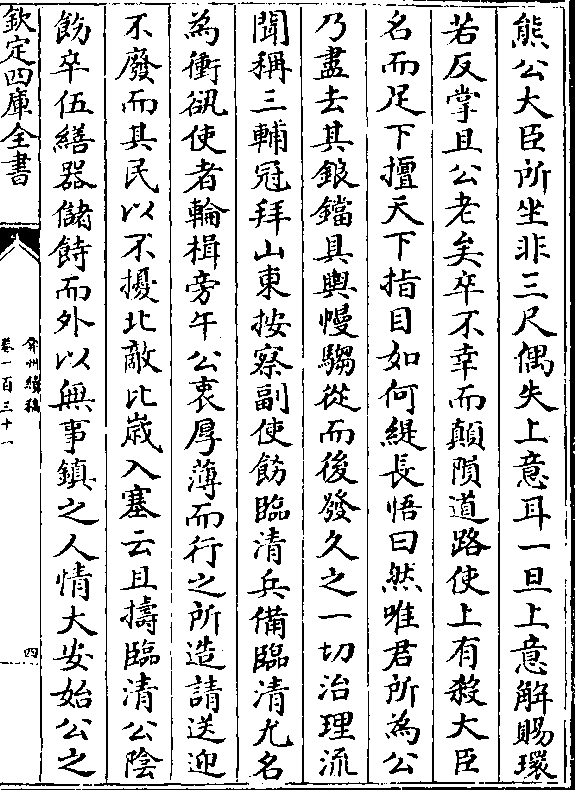 熊公大臣所坐非三尺偶失上意耳一旦上意解賜環
若反掌且公老矣卒不幸而顛隕道路使上有殺大臣
名而足下擅天下指目如何緹長悟曰然唯君所為公
乃盡去其鋃鐺具輿幔騶從而後發久之一切治理流
聞稱三輔冠拜山東按察副使飭臨清兵備臨清尤名
為衝劇使者輪楫旁午公衷厚薄而行之所造請送迎
不廢而其民以不擾北敵比歲入塞云且擣臨清公陰
飭卒伍繕器儲餙而外以無事鎮之人情大安始公之
欽定四庫全書
弇州續稿
卷一百三十一
四